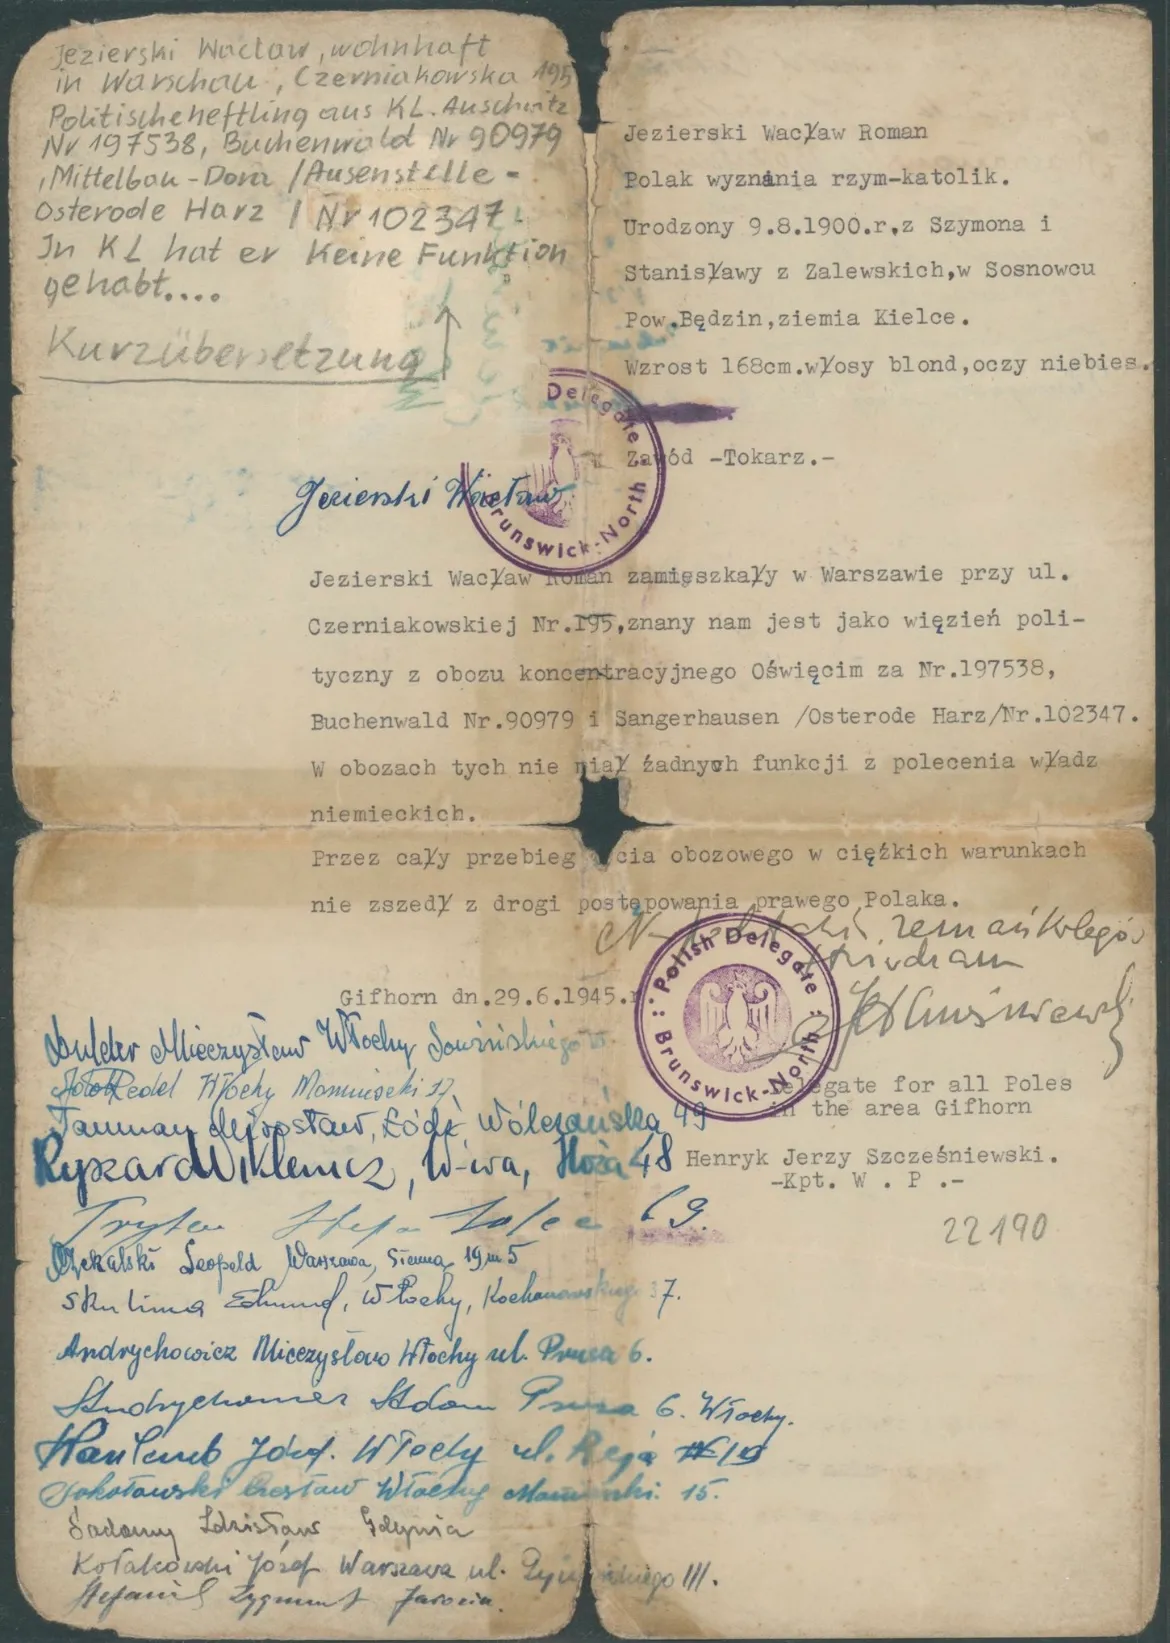 Jezierski Wacław, wohnhaft
in Warschau, Czerniakowska 195
Politischeheftling aus KL. Auschwitz
Nr 197538, Buchenwald Nr 90979
, Mittelbau-Dora /Ausenstelle-
Osterode Harz / Nr 102347.
In KL hat er keine Funktion
gehabt....
Kurzübersetzung
Jezierski Wacław Roman
Polak wyznania rzym-katolik.
Urodzony 9.8.1900.r,z Szymona i
Stanisławy z Zalewskich,w Sosnowcu
Pow.Będzin,ziemia Kielce.
Wzrost 168cm.włosy blond,oczy niebies.
Zawód -Tokarz.-
Delegate
Brunswick-North
Jezierski Wacław
Jezierski Wacław Roman zamięszkały w Warszawie przy ul.
Czerniakowskiej Nr.195,znany nam jest jako więzień poli-
tyczny z obozu koncentracyjnego Oświęcim za Nr.197538,
Buchenwald Nr.90979 i Sangerhausen /Osterode Harz/Nr.102347.
W obozach tych nie miał żadnych funkcji z polecenia władz
niemieckich.
Przez cały przebieg cia obozowego w ciężkich warunkach
nie zszedł z drogi postępowania prawego Polaka.
Gifhorn dn.29.6.1945.r
Polish Delegate
Brunswick-North
Delegate for all Poles
in the area Gifhorn
Henryk Jerzy Szcześniewski.
-Kpt. W . P .-
22190
Mieczysław Włochy
Redel Włochy 17.
Mirosław, Łódź, Wólczańska 49
Ryszard Wiklemcz, W-wa, Hoża 48
69.
Leopold Warszawa, Sienna 19 m 5
Skulima Edmund, Włochy, Kochanowskiego 37.
Andrychowicz Mieczysław Włochy ul. Prusa 6.
Andrychowicz Adam Prusa 6. Włochy.
Józef. Włochy ul. Reja 19
Sokołowski Czesław Włochy 15.
Sadowy Zdzisław Gdynia
Kołakowski Józef Warszawa ul.
Stefaniś Zygmunt Jarocin.